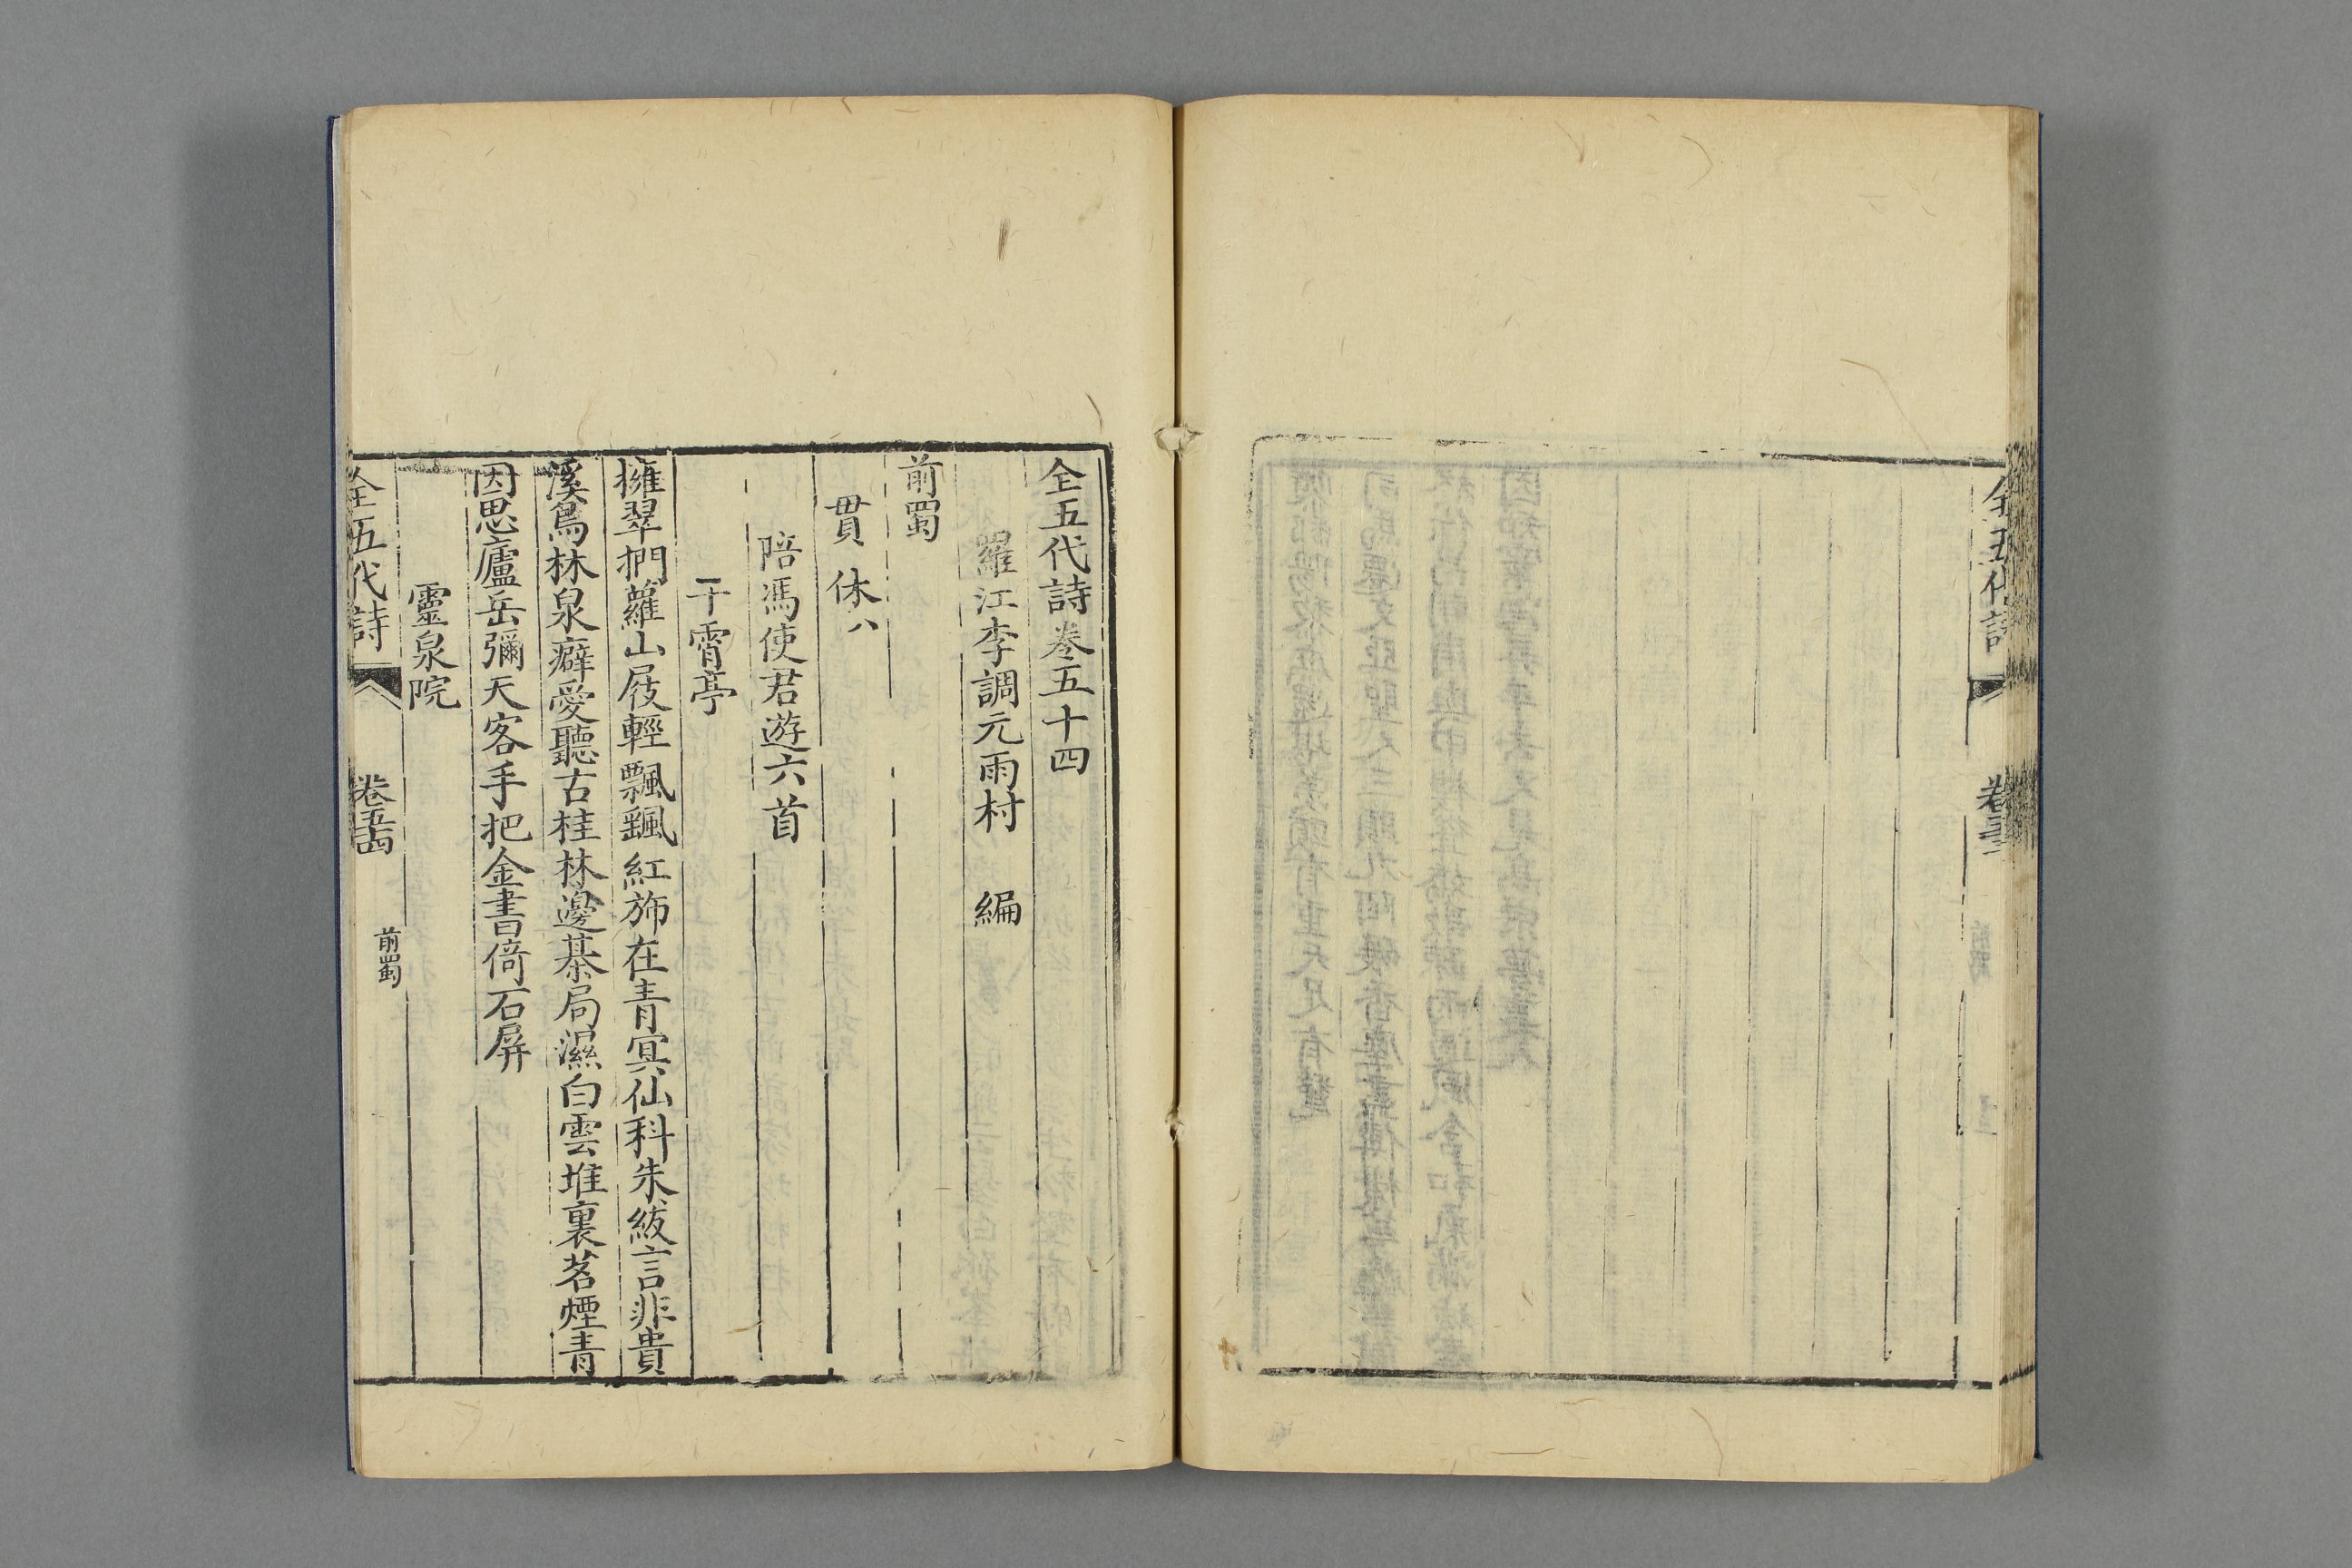 全五代詩
全五代詩卷五十四
羅江李調元雨村 編
前蜀
貫休八
陪馮使君遊六首
干霄亭
擁翠捫蘿山屐輕飄颻紅斾在青冥仙科朱紱言非貴
溪鳥林泉癖愛聽古桂林邊棊局濕白雲堆裏茗煙青
因思廬岳彌天客手把金書倚石屏
靈泉院
全五代詩 卷五十四 前蜀